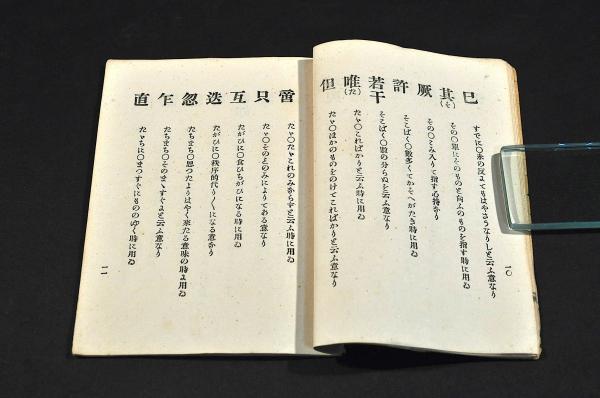 已 すでに〇未の反よてもはやさうなりしと云ふ意なり
其(そ) その〇單にそのものと向ふのものを指す時に用ゐ
厥 その〇とみ入りて指す心持なり
許 そこばく〇數多くてかそへがたき時に用ゐ
若干 そこばく〇數の分らぬを云ふ意なり
唯(た) たゞ〇こればかりと云ふ時に用ゐ
但 たゞ〇ほかのものをのけてこればかりと云ふ意なり
一〇
啻 たゞ〇たゞこれのみならずと云ふ時に用ゐ
只 たゞ〇そのとのみによりてある意なり
互 たがひに〇食ひちがひになる時に用ゐ
迭 たがひに〇秩序的代り〱になる意なり
忽 たちまち〇思つたよりはやく來たる意味の時よ用ゐ
乍 たちまち〇そのまゝすぐよと云ふ意なり
直 たゞちに〇まつすぐにもののゆく時に用ゐ
一一